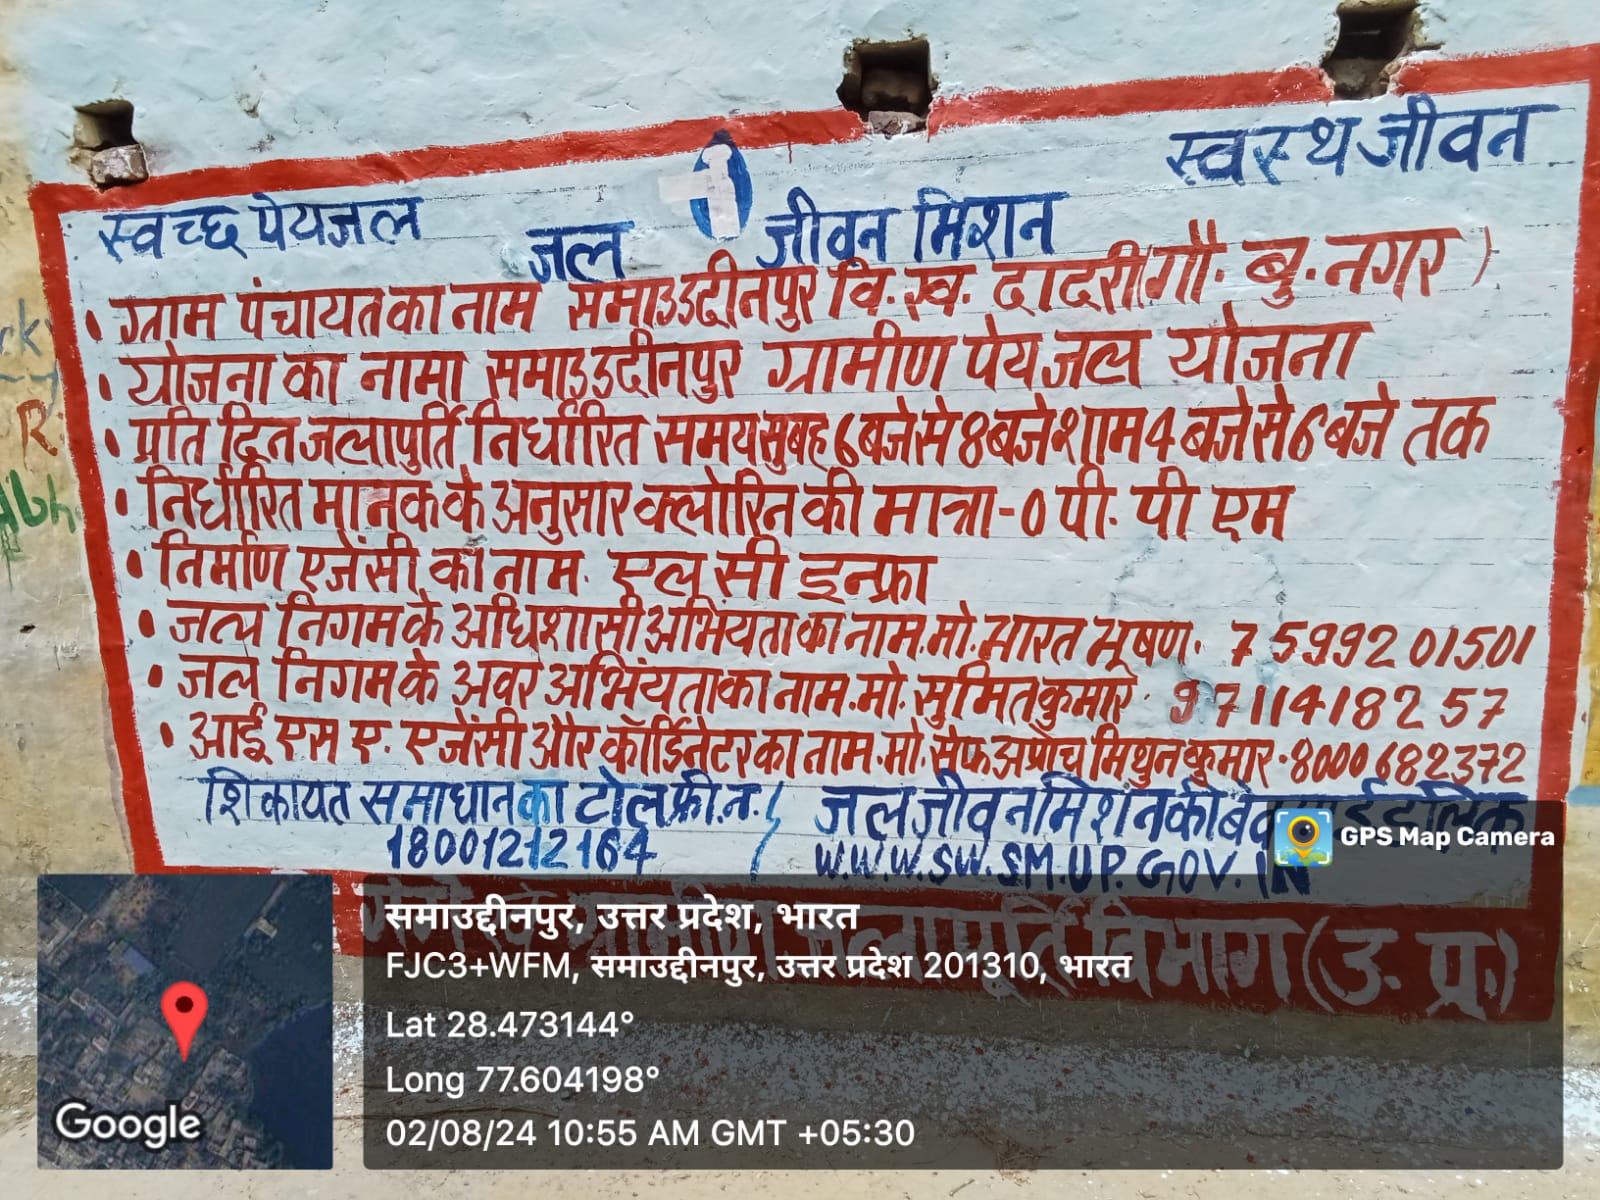 स्वच्छ पेयजल
स्वस्थ जीवन
जल जीवन मिशन
• ग्राम पंचायत का नाम समाउउद्दीनपुर वि. ख. दादरी (गौ. बु. नगर)
• योजना का नामा समाउउदीनपुर ग्रामीण पेयजल योजना
• प्रति दिन जलापुर्ति निर्धारित समय सुबह 6 बजे से 8 बजे शाम 4 बजे से 6 बजे तक
• निर्धारित मानक के अनुसार क्लोरिन की मात्रा - 0 पी. पी एम
• निर्माण एजेंसी का नाम. एल सी इन्फ्रा
• जल निगम के अधिशासी अभिंयता का नाम. मो. भारत भूषण. 7599201501
• जल निगम के अवर अभिंयता का नाम. मो. सुमित कुमार. 9711418257
• आई एस ए. एजेंसी और कॉर्डिनेटर का नाम. मो. मिथुन कुमार. 8000682372
शिकायत समाधान का टोल फ्री. न.
18001212164
जल जीवन मिशन की
W.W.W.SW.SM.UP.GOV.IN
ग्रामीण जलापूर्ति विभाग (उ. प्र.)
GPS Map Camera
समाउद्दीनपुर, उत्तर प्रदेश, भारत
FJC3+WFM, समाउद्दीनपुर, उत्तर प्रदेश 201310, भारत
Lat 28.473144°
Long 77.604198°
02/08/24 10:55 AM GMT +05:30
Google